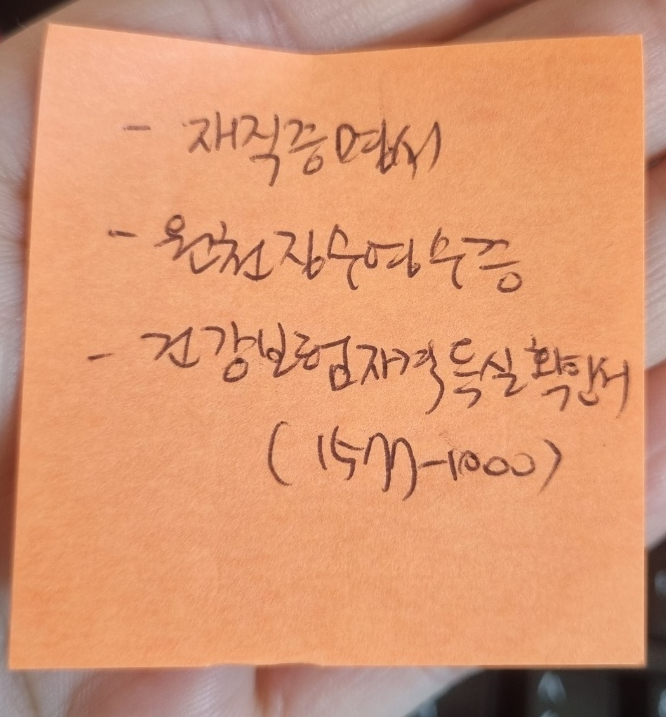 - 재직증명서
- 원천징수영수증
- 건강보험자격득실확인서
(1577-1000)